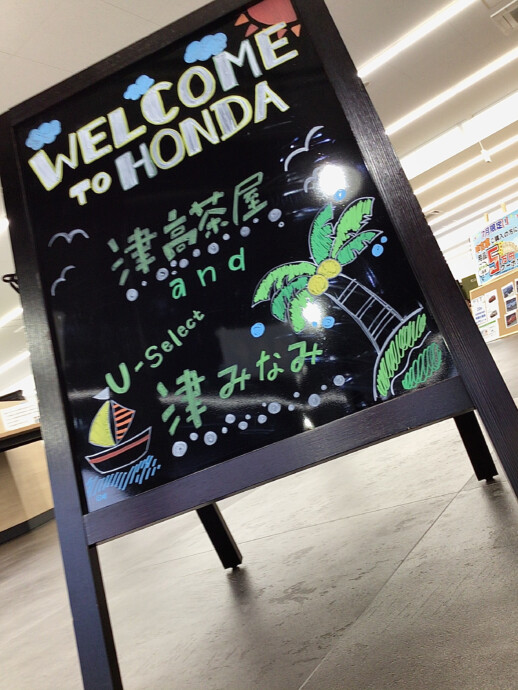 WELCOME
TO HONDA
津高茶屋
and
U-Select
津みなみ